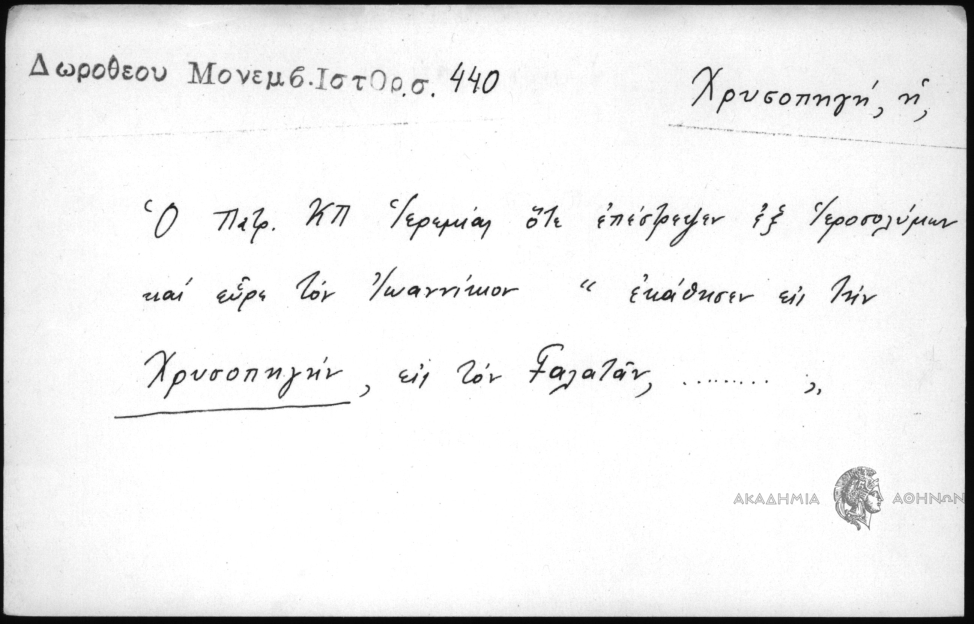 Δωροθεου Μονεμβ.ΙστΟρ.σ. 440
Χρυσοπηγή, ἡ,
Ὁ Πατρ. ΚΠ Ἱερεμίας ὅτε ἐπέστρεψεν ἐξ Ἱεροσολύμων
καί εὗρε τόν Ἰωαννίκιον “ ἐκάθησεν εἰς τήν
Χρυσοπηγήν, εἰς τόν Γαλατᾶν, ......... „
ΑΚΑΔΗΜΙΑ ΑΘΗΝΩΝ